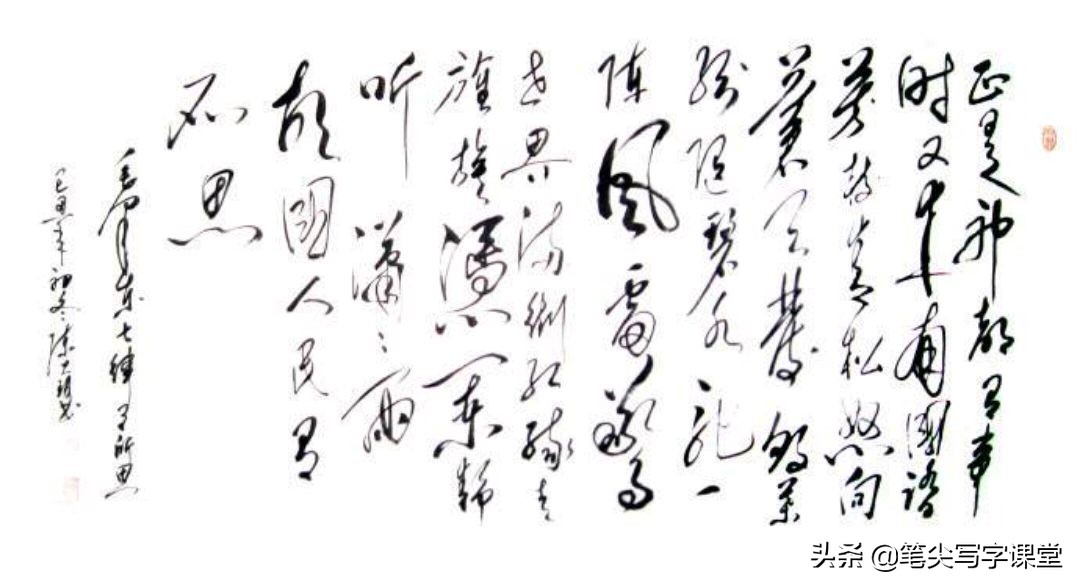 正是神都有事
时又来南国踏
芳枝青松怒向
苍天发败叶
纷随碧水驰一
阵风雷惊
世界满街红绿走
旌旗凭阑静
听潇潇雨
故国人民有
所思
毛泽东七律有所思
己丑年初冬陈
头条 @笔尖写字课堂